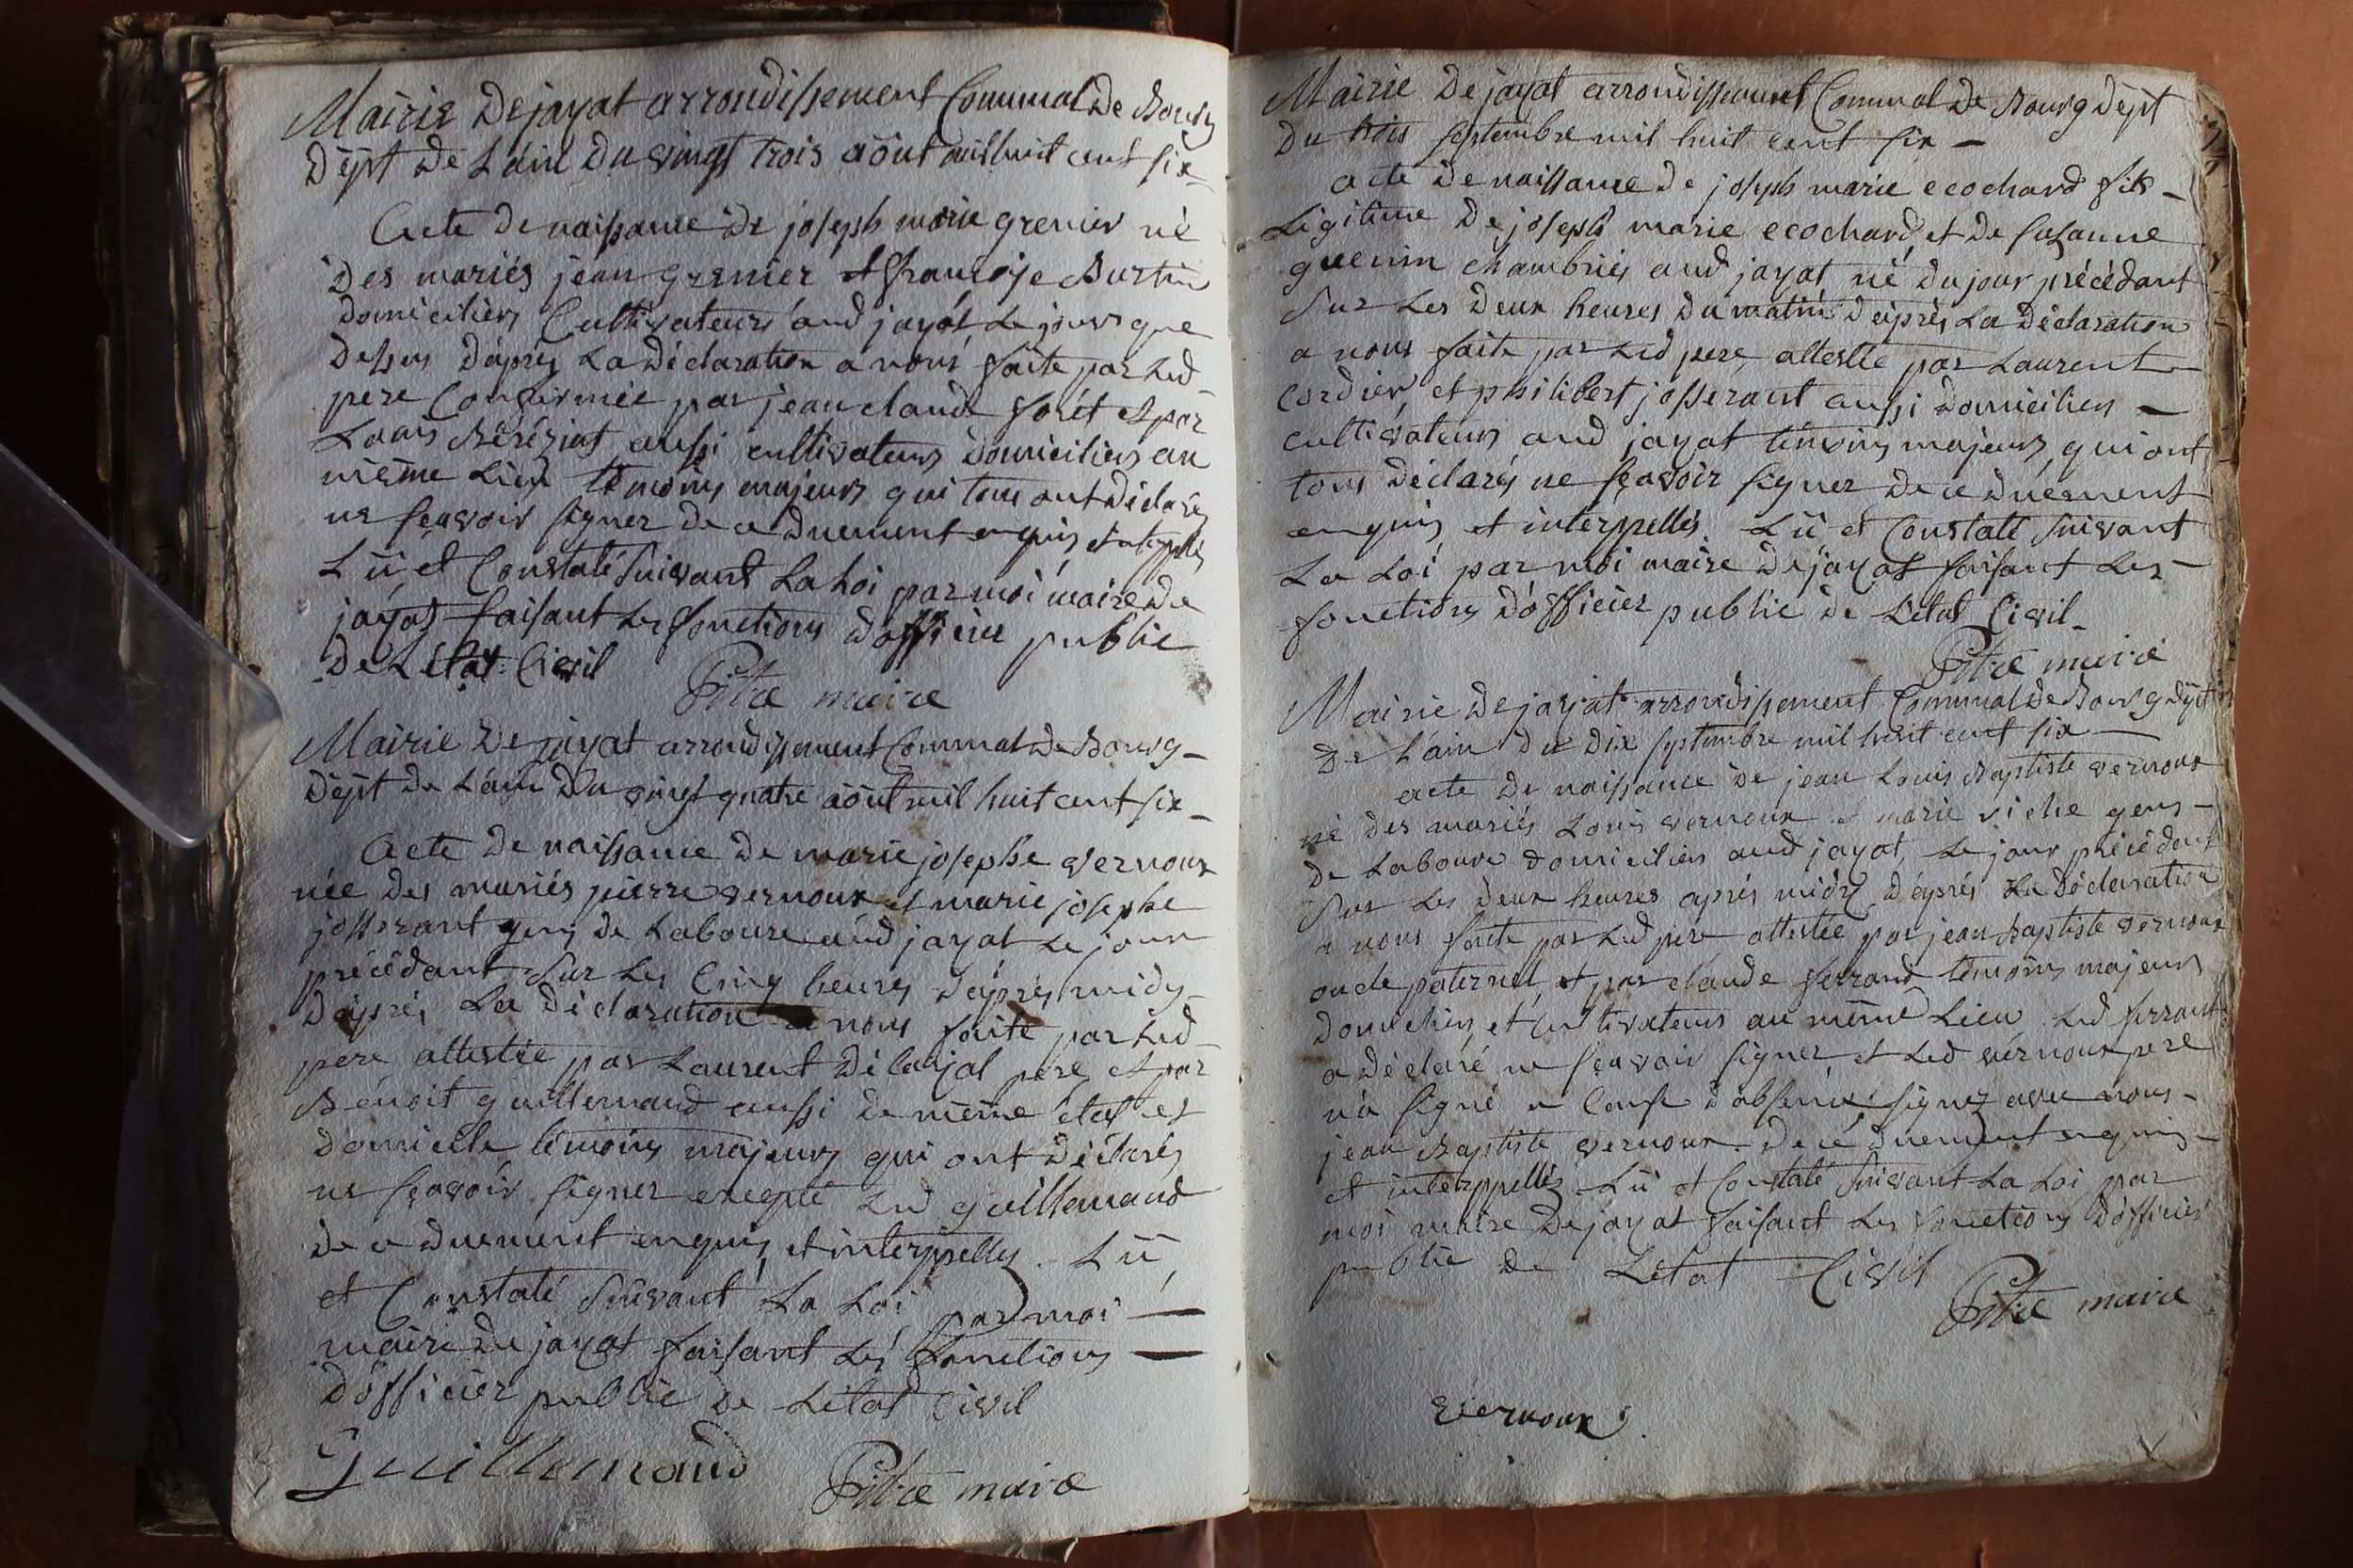 Mairie De jayat arrondissement Commual De Bourg
Dépt De Láin Du vingt trois aôut mil huit cent six
Acte De naissance De joseph marie grenier né
Des mariés jean grenier et francoise Burtin
Domiciliers Cultivateurs aud jayat Le jour que
Dessus D'après La Déclaration a nous faite par Led
pere Confirmée par jean claude forêt et par
Louis Béréziat aussi cultivateurs Domiciliers au
même Lieu témoins majeurs qui tous ont Déclarés
ne sçavoir signer De ce Duement enquis et interppellés
Lû et Constaté suivant La Loi par moi maire De
jayat faisant Les fonctions Dofficier public
De Létat Civil
Pitre maire
Mairie De jayat arrondissement Commual De Bourg
Dépt De Láin Du vingt quatre aôut mil huit cent six
Acte De naissance De marie josephe vernoux
née Des mariés pierre vernoux et marie josephe
josserant gens De Laboure aud jayat Le jour
précédant Sur Les Cinq heures D'après midy
D'après La Déclaration a nous faite par Led
pere attestée par Laurent Délorjol pere et par
Benoit guillemaud aussi De même état et
Domicile témoins majeurs qui ont Déclarés
ne sçavoir signer excepté Led guillemaud
De ce Duement enquis et interppellés. Lû
et Constaté suivant La Loi par moi
maire De jayat faisant Les fonctions
Dofficier public De Létat Civil
Guillemaud
Pitre maire
Mairie De jayat arrondissement Commual De Bourg Dépt
Du trois septembre mil huit cent six
acte De naissance De joseph marie ecochard fils
Légitime De joseph marie ecochard et De susanne
guerin chambriés aud jayat né Du jour précédant
Sur Les Deux heures Du matin D'après La Déclaration
a nous faite par Led pere, attestée par Laurent
Cordier, et philibert josserant aussi Domiciliers
cultivateurs aud jayat témoins majeurs, qui ont
tous Déclarés ne sçavoir signer De ce Duement
enquis et interppellés. Lû et Constaté suivant
La Loi par moi maire De jayat faisant Les
fonctions D'officier public De Létat Civil
Pitre maire
Mairie De jayat arrondissement Commual De Bourg Dépt
De L'ain Du Dix septembre mil huit cent six
acte De naissance De jean Louis Baptiste vernoux
né Des mariés Louis vernoux et marie viche gens
De Laboure Domiciliers aud jayat, Le jour précédent
Sur Les Deux heures après midy D'après La Déclaration
a nous faite par Led pere attestée par jean Baptiste vernoux
oncle paternel, et par claude ferrand témoins majeurs
Domiciliers et Cultivateurs au même Lieu Led ferrand
a Déclaré ne sçavoir signer, et Led vernoux pere
n'a signé a Cause D'absence, signez avec nous
jean Baptiste vernoux. De ce Duement enquis
et interppellés Lû et Constaté suivant La Loi par
moi maire De jayat faisant Les fonctions D'officier
public De Létat Civil
Pitre maire
vernoux